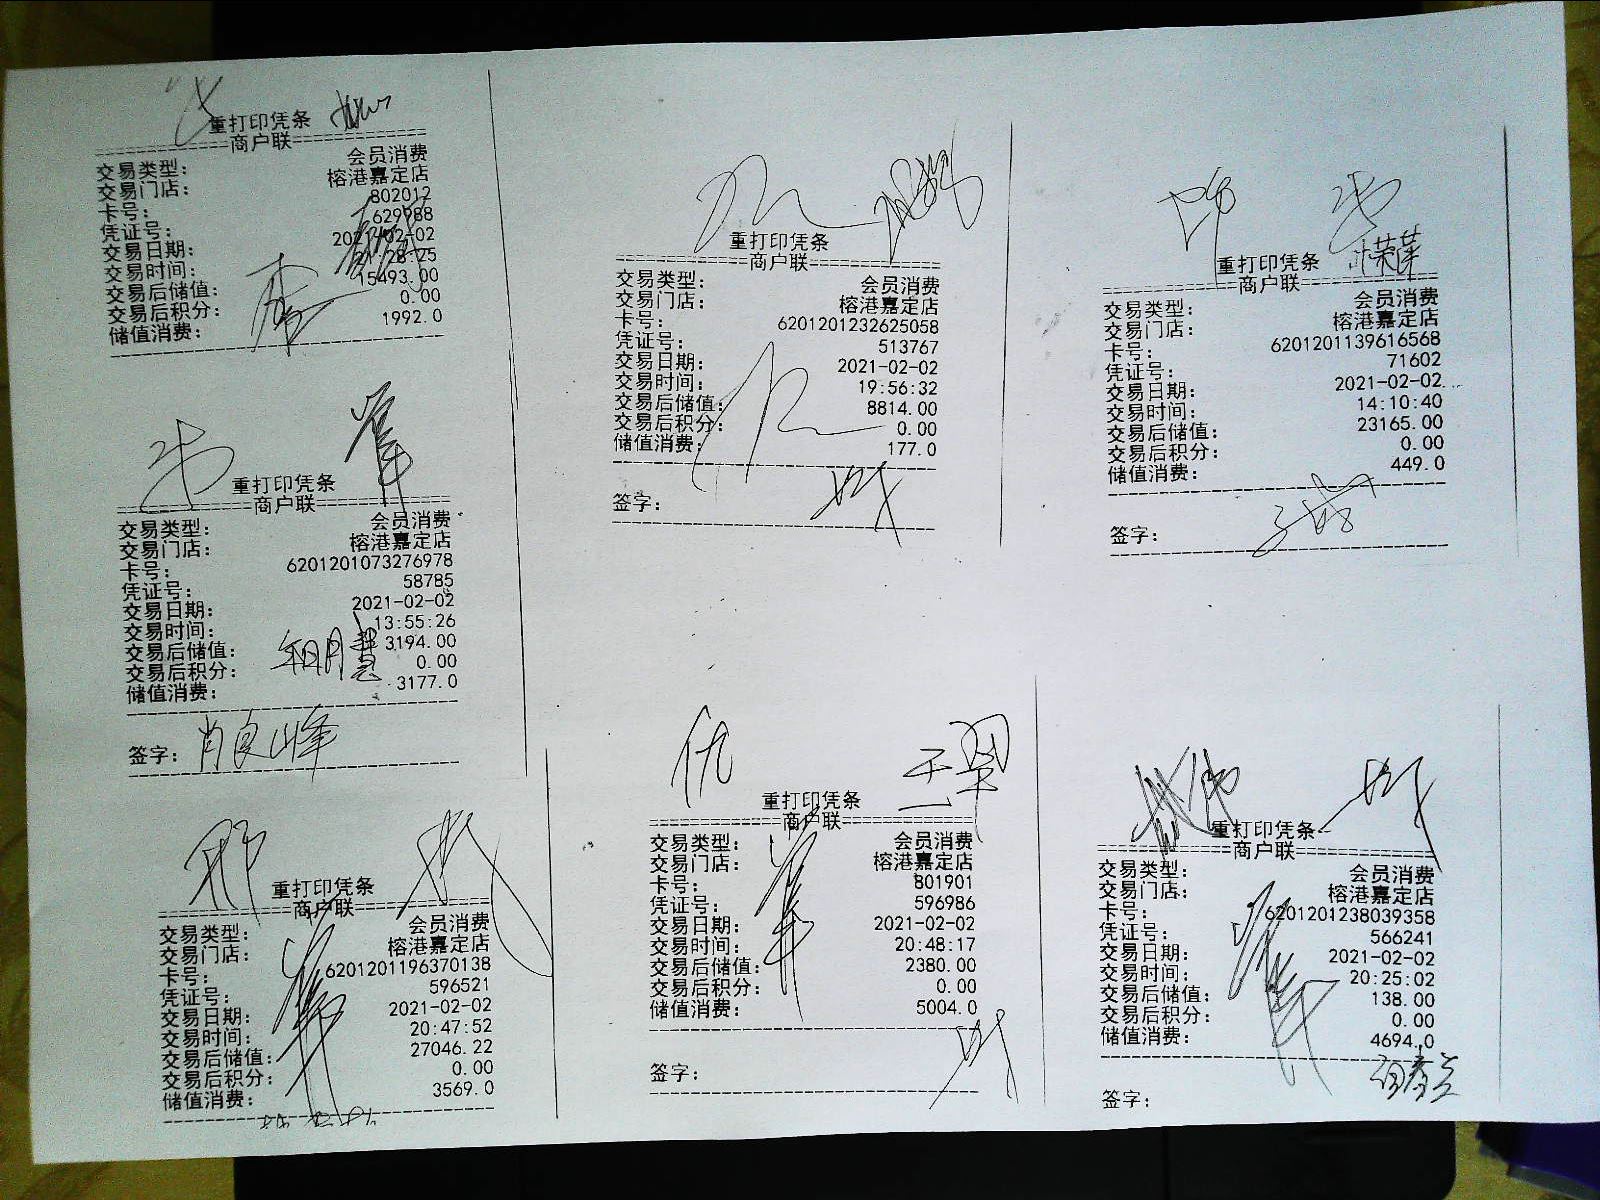 重打印凭条
商户联
交易类型： 会员消费
交易门店： 榕港嘉定店
卡号： 802012
凭证号： 629988
交易日期： 2021-02-02
交易时间： 28:25
交易后储值： 15493.00
交易后积分： 0.00
储值消费： 1992.0
重打印凭条
商户联
交易类型： 会员消费
交易门店： 榕港嘉定店
卡号： 6201201073276978
凭证号： 58785
交易日期： 2021-02-02
交易时间： 13:55:26
交易后储值： 3194.00
交易后积分： 0.00
储值消费： 3177.0
签字： 肖良峰
重打印凭条
商户联
交易类型： 会员消费
交易门店： 榕港嘉定店
卡号： 6201201196370138
凭证号： 596521
交易日期： 2021-02-02
交易时间： 20:47:52
交易后储值： 27046.22
交易后积分： 0.00
储值消费： 3569.0
重打印凭条
商户联
交易类型： 会员消费
交易门店： 榕港嘉定店
卡号： 6201201232625058
凭证号： 513767
交易日期： 2021-02-02
交易时间： 19:56:32
交易后储值： 8814.00
交易后积分： 0.00
储值消费： 177.0
签字：
重打印凭条
商户联
交易类型： 会员消费
交易门店： 榕港嘉定店
卡号： 801901
凭证号： 596986
交易日期： 2021-02-02
交易时间： 20:48:17
交易后储值： 2380.00
交易后积分： 0.00
储值消费： 5004.0
签字：
重打印凭条
商户联
交易类型： 会员消费
交易门店： 榕港嘉定店
卡号： 6201201139616568
凭证号： 71602
交易日期： 2021-02-02
交易时间： 14:10:40
交易后储值： 23165.00
交易后积分： 0.00
储值消费： 449.0
签字：
重打印凭条
商户联
交易类型： 会员消费
交易门店： 榕港嘉定店
卡号： 6201201238039358
凭证号： 566241
交易日期： 2021-02-02
交易时间： 20:25:02
交易后储值： 138.00
交易后积分： 0.00
储值消费： 4694.0
签字：